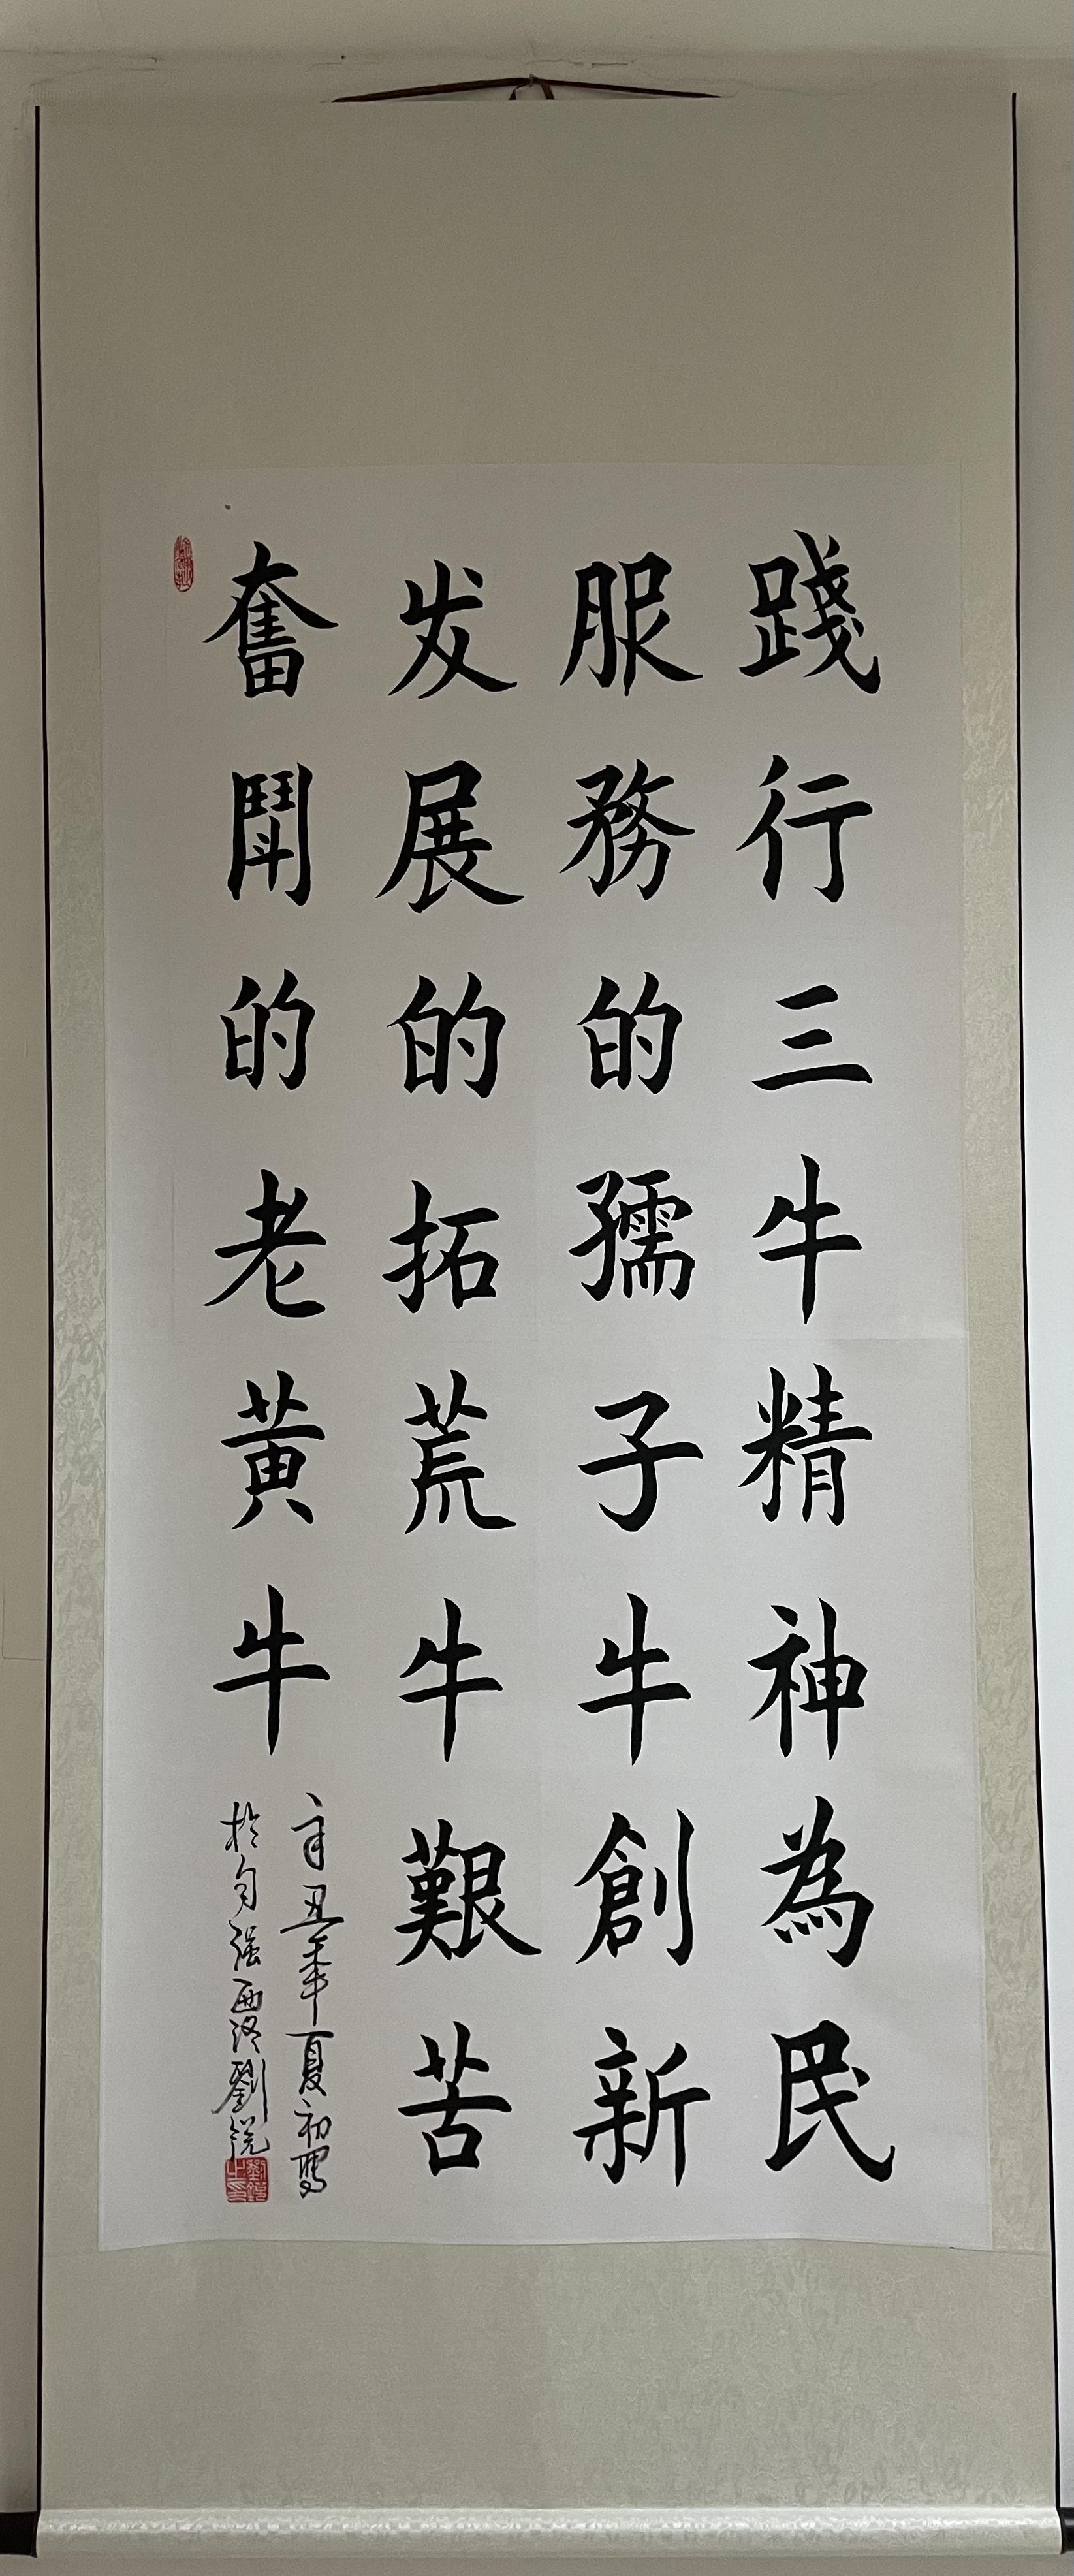 踐行三牛精神為民
服務的孺子牛創新
发展的拓荒牛艱苦
奮鬪的老黃牛
辛丑年夏初寫
於自强西洛劉锐